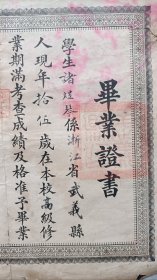 畢業證書
學生諸葛參係浙江省武義縣
人現年拾伍歲在本校高級修
業期滿考查成績及格准予畢業